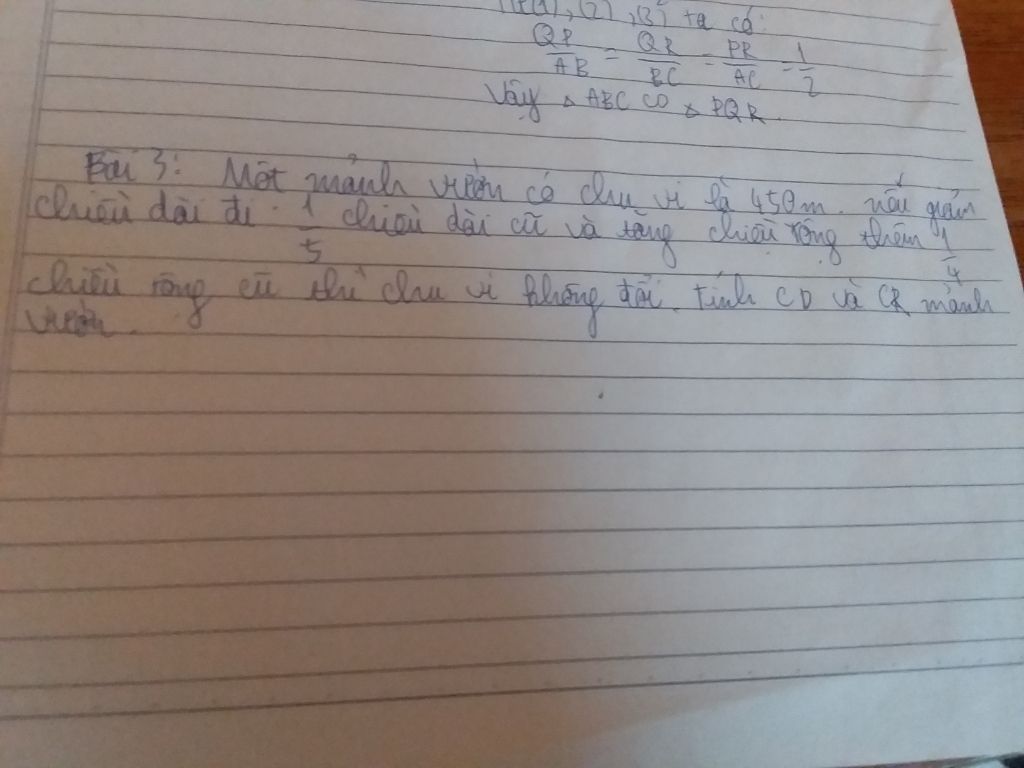 (1), (2), (3) ta có:
QP/AB = QR/BC = PR/AC = 1/2
Vậy △ ABC ∽ △ PQR.
Bài 3: Một mảnh vườn có chu vi là 450m. nếu giảm
chiều dài đi 1/5 chiều dài cũ và tăng chiều rộng thêm 1/4
chiều rộng cũ thì chu vi không đổi. tính CD và CR mảnh
vườn.